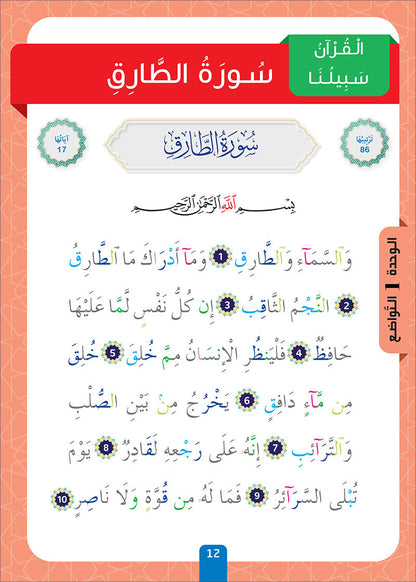 الْقُرْآنُ
سَبِيلُنَا
سُورَةُ الطَّارِقِ
تَرْتِيبُهَا
86
سُورَةُ الطَّارِقِ
آيَاتُهَا
17
بِسْمِ اللَّهِ الرَّحْمَٰنِ الرَّحِيمِ
وَالسَّمَآءِ وَالطَّارِقِ 1 وَمَآ أَدْرَاكَ مَا الطَّارِقُ
2 النَّجْمُ الثَّاقِبُ 3 إِن كُلُّ نَفْسٍ لَّمَّا عَلَيْهَا
حَافِظٌ 4 فَلْيَنظُرِ الْإِنسَانُ مِمَّ خُلِقَ 5 خُلِقَ
مِن مَّآءٍ دَافِقٍ 6 يَخْرُجُ مِنْ بَيْنِ الصُّلْبِ
وَالتَّرَآئِبِ 7 إِنَّهُ عَلَى رَجْعِهِ لَقَادِرٌ 8 يَوْمَ
تُبْلَى السَّرَآئِرُ 9 فَمَا لَهُ مِن قُوَّةٍ وَلَا نَاصِرٍ 10
الوحدة 1 التّواضع
12